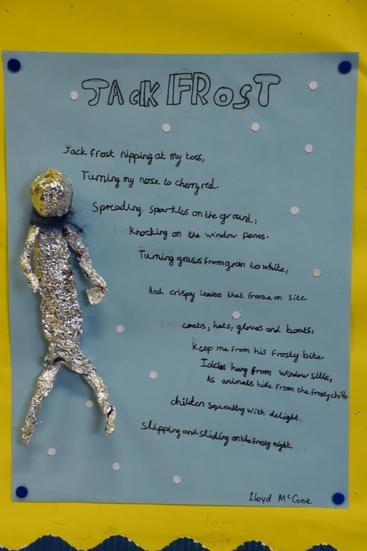 JACK FROST
Jack frost nipping at my toes,
Turning my nose to cherry red.
Spreading sparkles on the ground,
Knocking on the window panes.
Turning grass from green to white,
And crispy leaves that freeze on site.
coats, hats, gloves and boots,
Keep me from his frosty bite.
Icicles hang from window sills,
As animals hide from the frosty chills.
children squealing with delight.
slipping and sliding on the frosty night.
Lloyd McCone